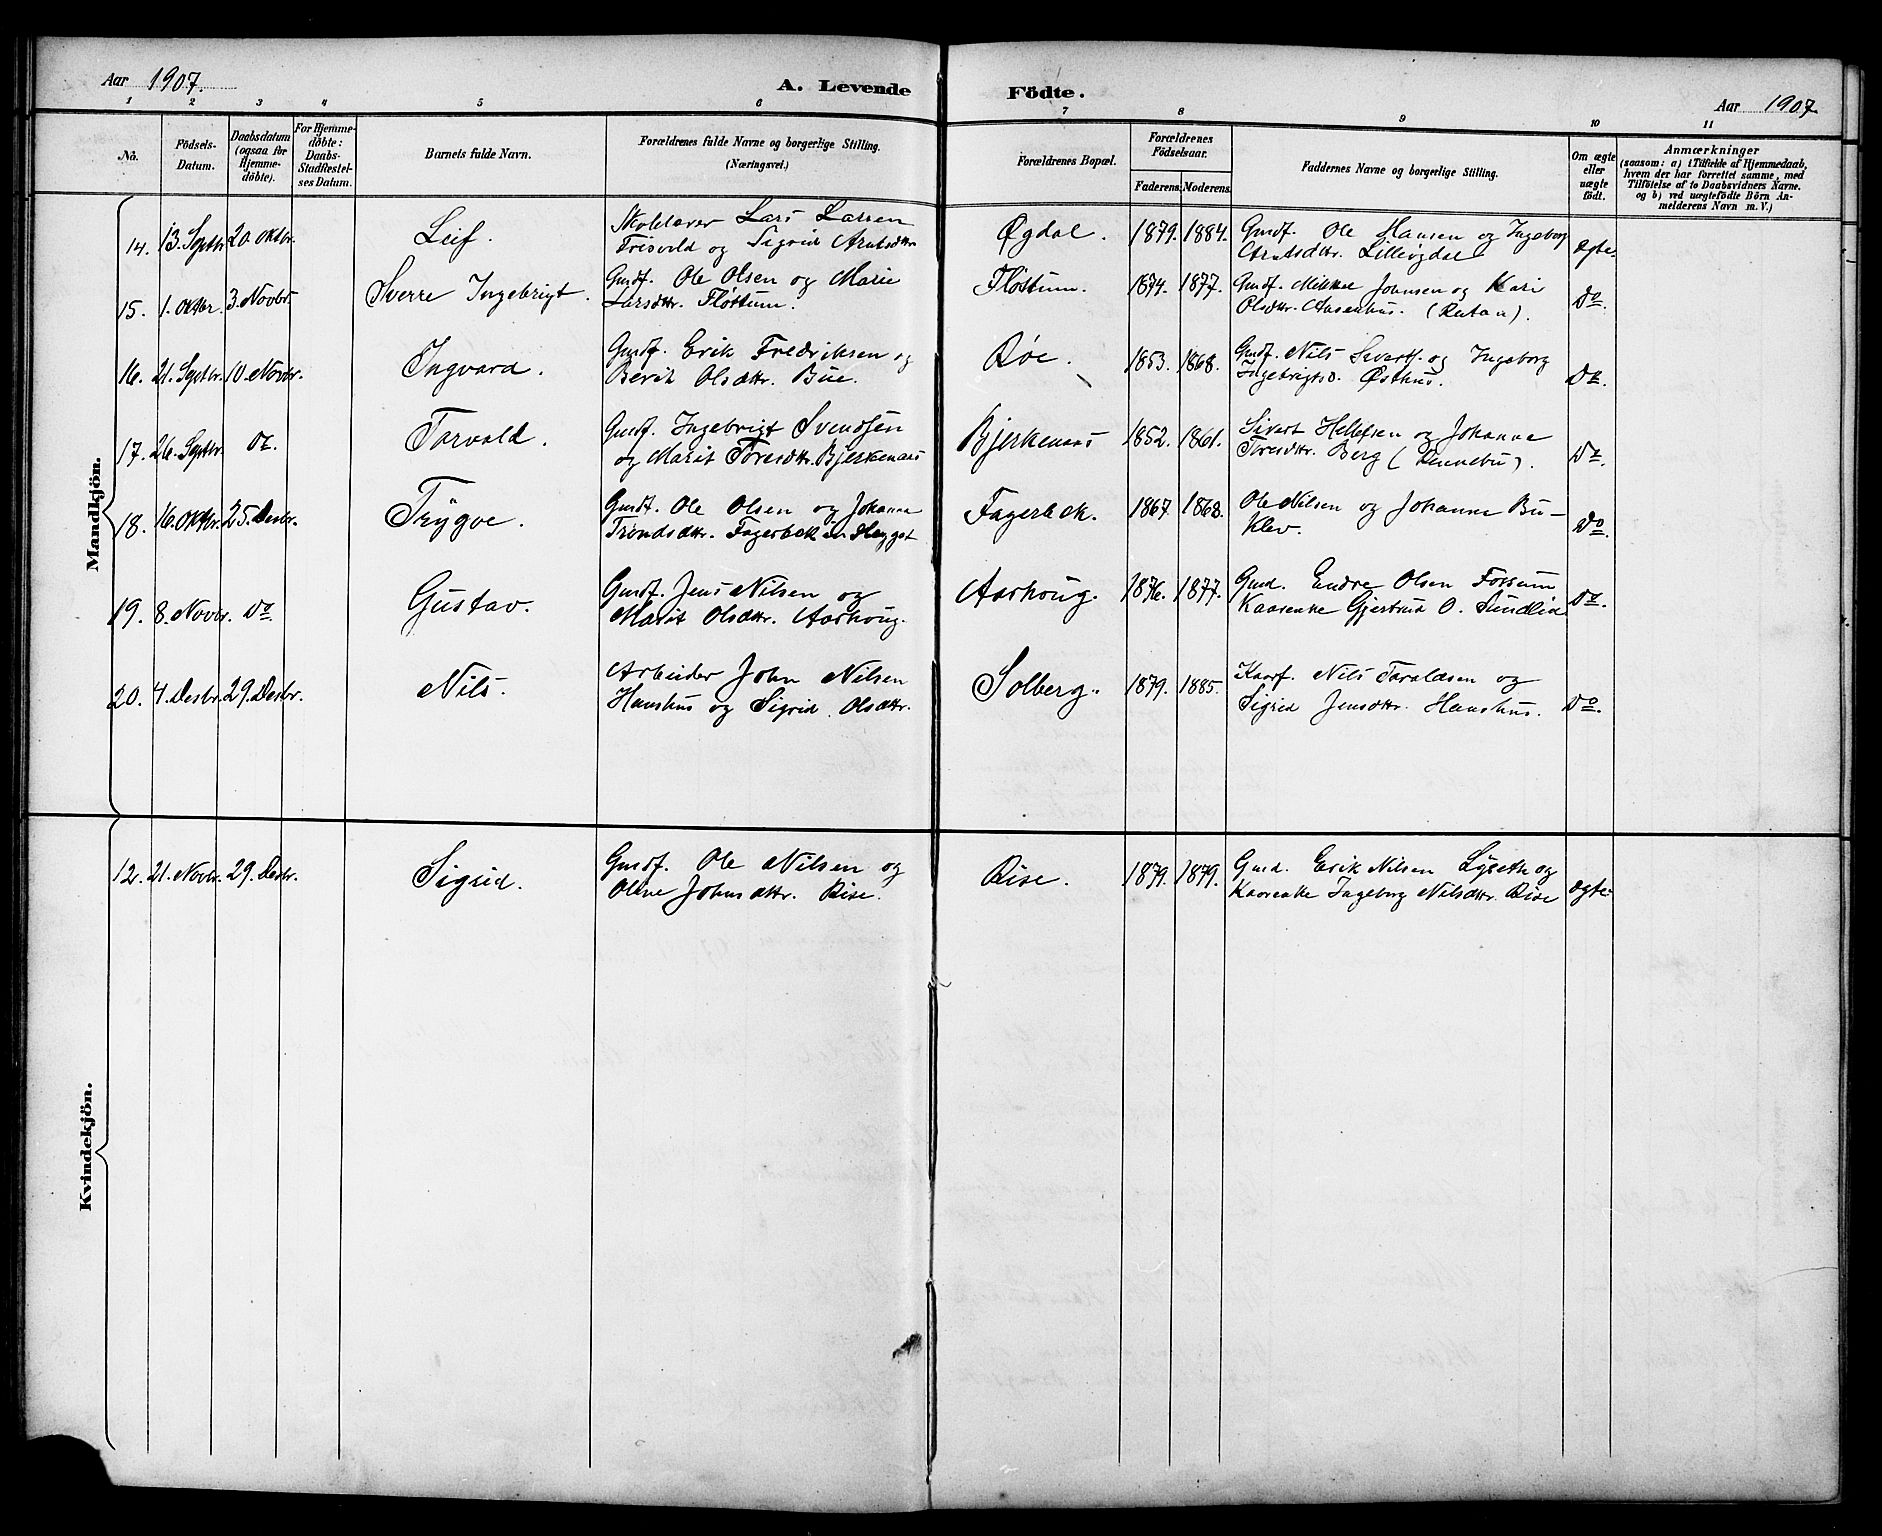 Aar 1907. A. Levende Födte. Aar 1907
1 2 3 4 5 6 7 8 9 10 11
No.
Födsels-
Datum.
Daabsdatum
(ogsaa for
Hjemme-
döbte).
For Hjemme-
döbte:
Daabs-
Stadfæstel-
ses Datum.
Barnets fulde Navn.
Forældrenes fulde Navne og borgerlige Stilling.
(Næringsvei.)
Forældrenes Bopæl.
Forældrenes
Födselsaar.
Faderens. Moderens.
Faddernes Navne og borgerlige Stilling.
Om ægte
eller
uægte
födt.
Anmærkninger
(saasom: a) i Tilfælde af Hjemmedaab,
hvem der har forrettet samme, med
Tilföielse af to Daabsvidners Navne.
og b) ved uægtefödte Börn An-
melderens Navn m. V.)
Mandkjön.
14. 13. Septbr. 20. Oktbr. Leif. Skolelærer Lars Larsen Øgdal. 1879. 1884. Gmdf. Ole Hansen og Ingeborg
og Sigrid Arntsdtr. Arntsdtr. Lilleøgdal ægte.
15. 1. Oktbr. 3. Novbr. Sverre Ingebrigt. Gmdf. Ole Olsen og Marie Fløttum. 1874. 1877. Gmdf. Mikkel Johnsen og Kari
Larsdtr. Fløttum. Olsdtr. Aasenhus. Do.
16. 21. Septbr. 10. Novbr. Ingvard. Gmdf. Erik Fredriksen og Røe. 1853. 1868. Gmdf. Nils Siverts. og Ingeborg
Berit Olsdtr. Bue. Ingebrigtsd. Østhus. Do.
17. 26. Septbr. Do. Torvald. Gmdf. Ingebrigt Svendsen Bjerkenaas 1852. 1861. Sivert Hellefsen og Johanne
og Marit Toresdtr. Bjerkenaas Toresdtr. Berg (Rennebu). Do.
18. 16. Oktbr. 25. Desbr. Trygve. Gmdf. Ole Olsen og Johanna Fagerbek. 1867 1868. Ole Nilsen og Johanna Bu-
Trondsdtr. Fagerbek klev. Do.
19. 8. Novbr. Do. Gustav. Gmdf. Jens Nilsen og Aarhoug. 1876. 1877. Gmd. Endre Olsen Forsum
Marit Olsdtr. Aarhoug. Kaarenke Gjertrud O. Sundlia Do.
20. 4. Desbr. 29. Desbr. Nils. Arbeider John Nilsen Solberg. 1879. 1885. Kaarf. Nils Taraldsen og
Hanshus og Sigrid Olsdtr. Sigrid Jensdtr. Hanshus. Do.
Kvindekjön.
12. 21. Novbr. 29. Desbr. Sigrid. Gmdf. Ole Nilsen og Rise. 1879. 1879. Gmd. Erik Nilsen og
Oline Johnsdtr. Rise. Kaarenke Ingeborg Nilsdtr. Rise ægte.